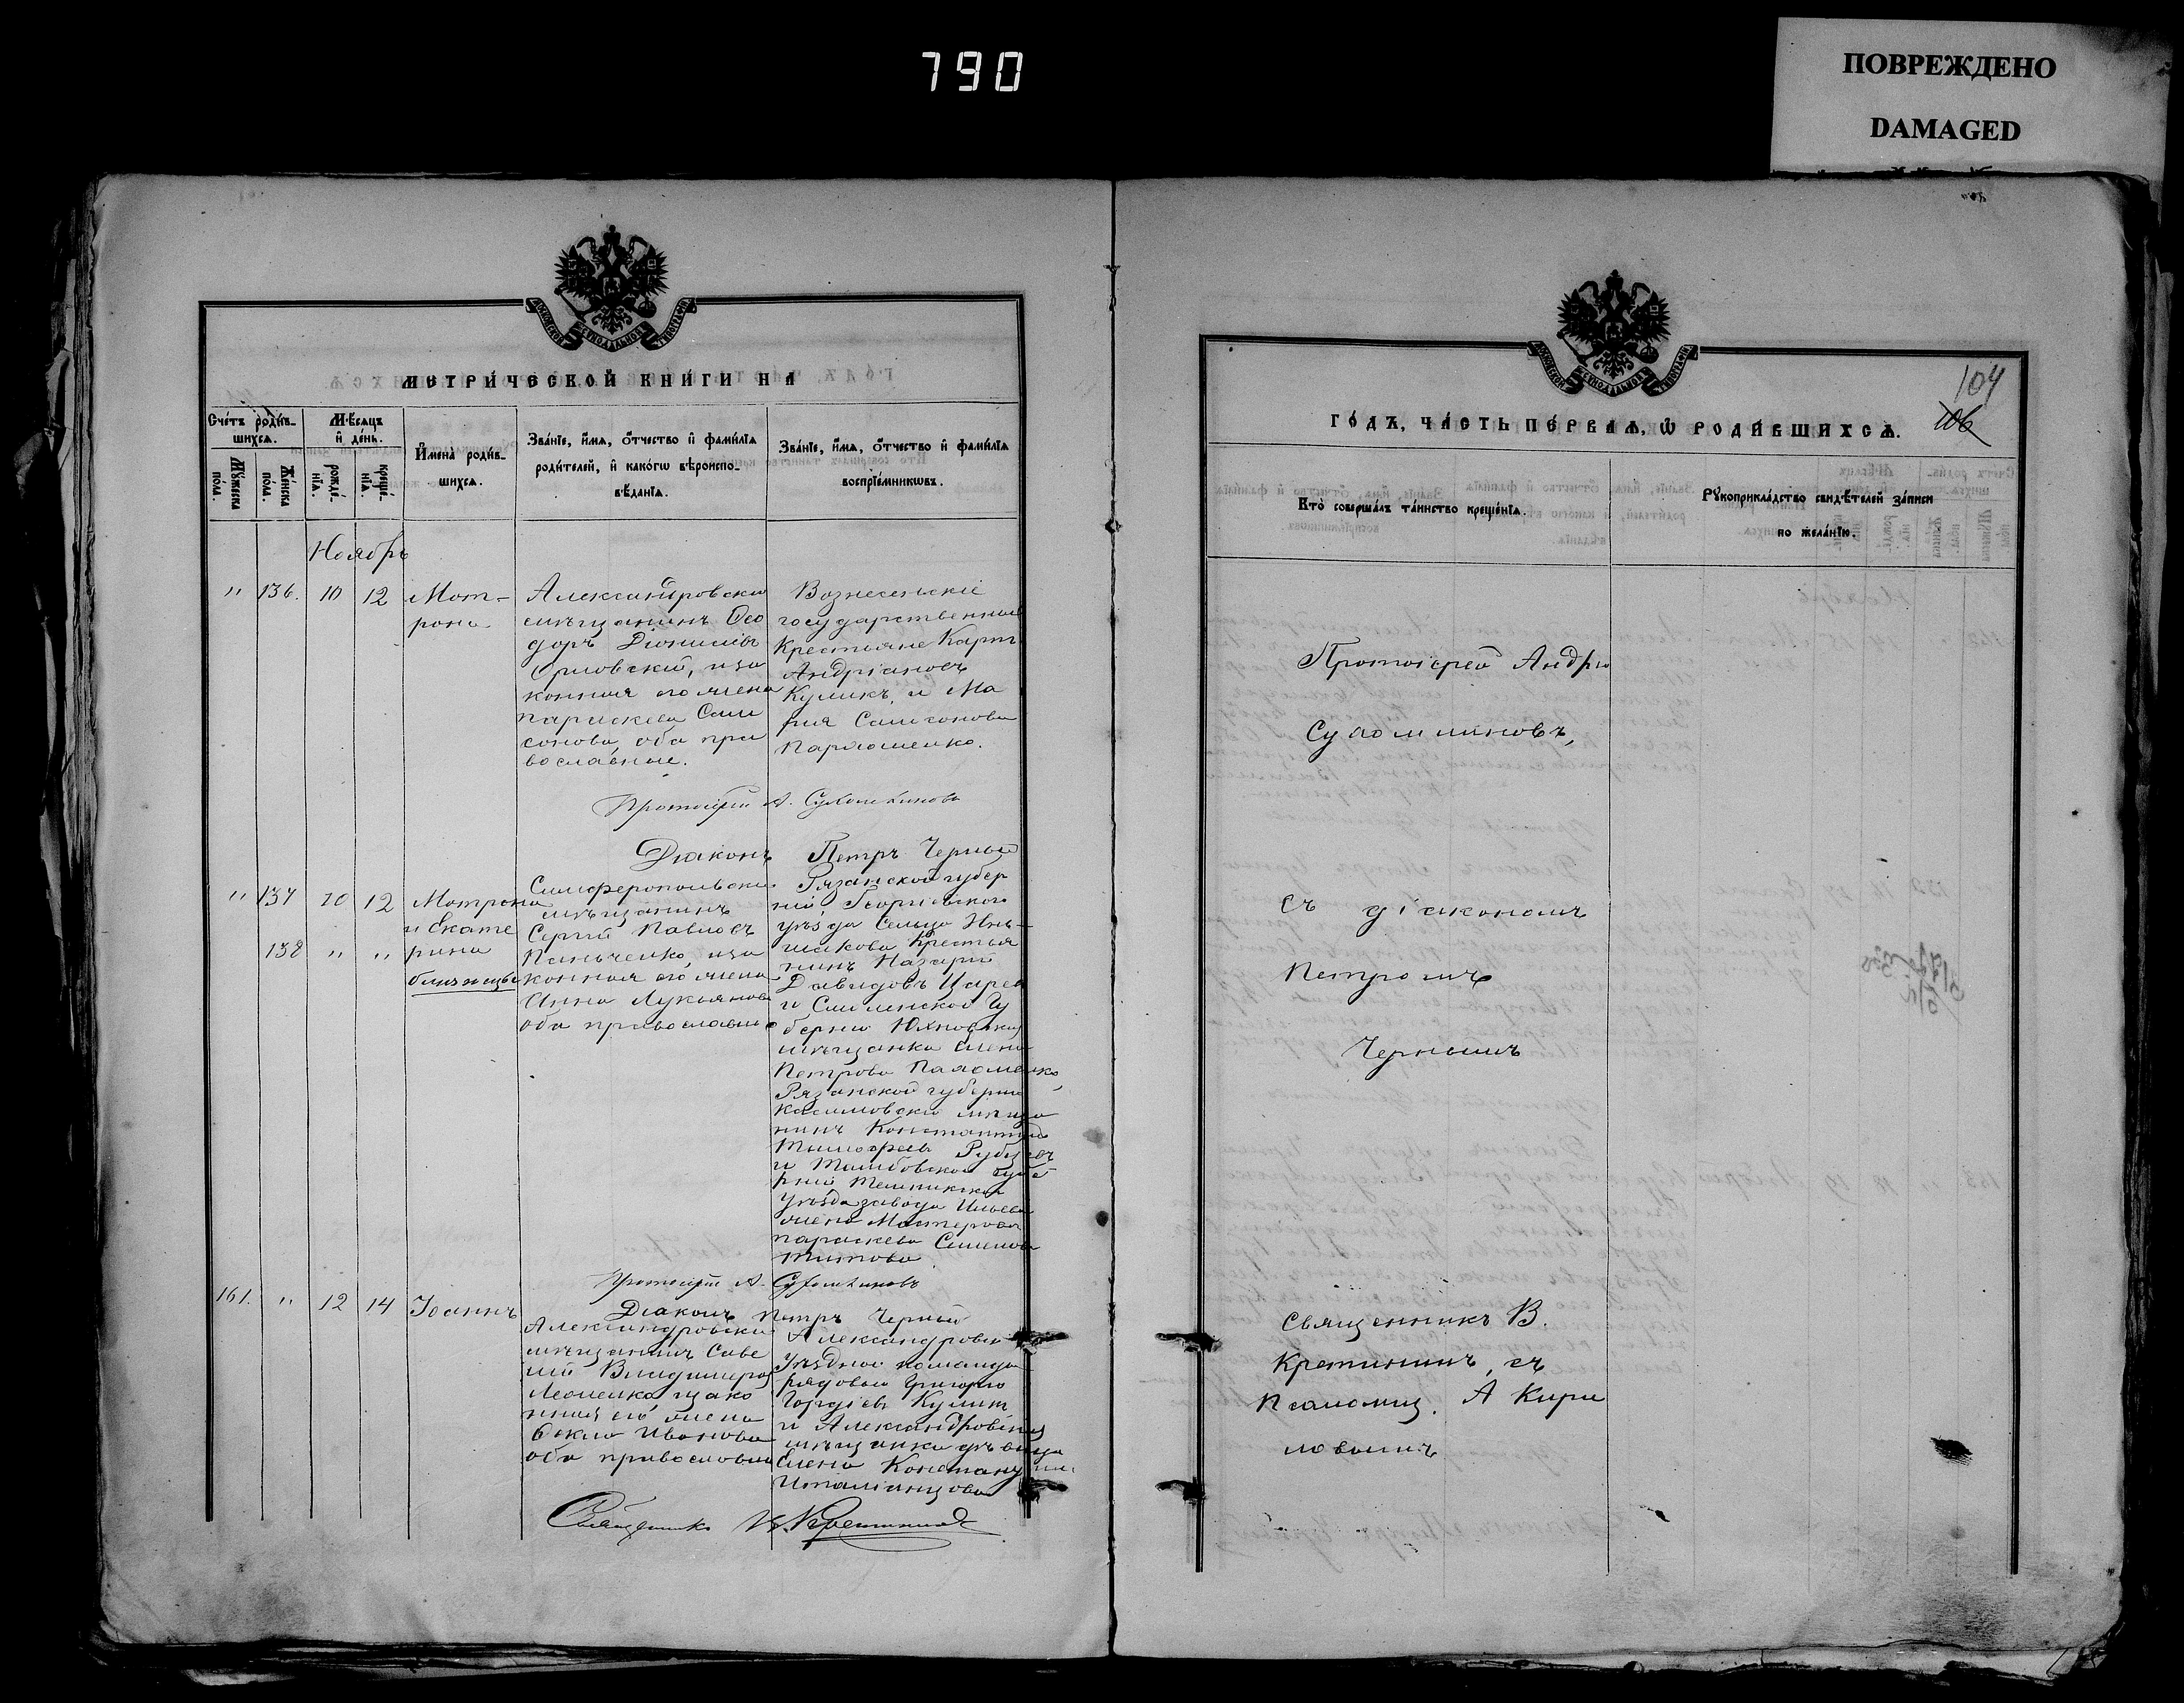 790
ПОВРЕЖДЕНО
DAMAGED
МЕТРИЧЕСКОЙ КНИГИ НА
Счетъ родив-
шихся.
Мѣсяцъ
и день.
Имена родив-
шихся.
Званіе, имя, отчество и фамилія
родителей, и какогѡ вѣроиспо-
вѣданія.
Званіе, имя, отчество и фамилія
воспріемникѡвъ.
Мужеска пола.
Женска пола.
рожде-
нія.
креще-
нія.
Ноябрь
" 136. 10 12
Мот-
рона
Александровски
мѣщанинъ Ѳео
доръ Діонисіевъ
Орловскій, и за
конная его жена
Параскева Сам
сонова, оба пра
вославные.
Вознесенскіе
государственные
Крестьяне Карп
Андріановъ
Куликъ, и Ма
рія Самсонова
Пархоменко.
Протоіерей А. Сухомлиновъ
Діаконъ Петръ Черный
" 137 10 12
138 " "
Матрона
и Екате
рина
близнецы
Симферопольски
мѣщанинъ
Сергій Павловъ
Панченко, и за
конная его жена
Анна Лукьянова
оба православны
Рязанской губер
ніи Егорьевского
уѣзда Сельца
Крестья
нинъ Назарій
Давидовъ Царев
и Смоленской Гу
берніи Юхновская
мѣщанка Елена
Петрова Пахоменко,
Рязанской губерніи
Касимовскій мѣща
нинъ Константинъ
Тимофеевъ Рубцовъ
и Тамбовской губе
рніи Темниковск
Уѣзда завода
жена Мастерова
Параскева Семенова
Титова
Протоіерей А. Сухомлиновъ
Діаконъ Петръ Черный
161. " 12 14
Іоаннъ
Александровски
мѣщанинъ Саве
лій Владимиров
Леоненко, и зако
нная его жена
Ѳекла Иванова
оба православны
Александровско
Уѣздной команды
рядовой Григорій
Гордіевъ Кулиш
и Александровская
мѣщанка дѣвица
Елена Константин
Италіанцова
Священникъ В. Кретининъ
ГОДЪ, ЧАСТЬ ПЕРВАЯ, Ѡ РОДИВШИХСЯ.
104
106
Кто совершалъ таинство крещенія.
Рукоприкладство свидѣтелей записи
по желанію.
Протоіерей Андрей
Сухомлиновъ,
съ діакономъ
Петромъ
Чернымъ
Священникъ В.
Кретининъ, съ
Псаломщ. А Кири
ловымъ